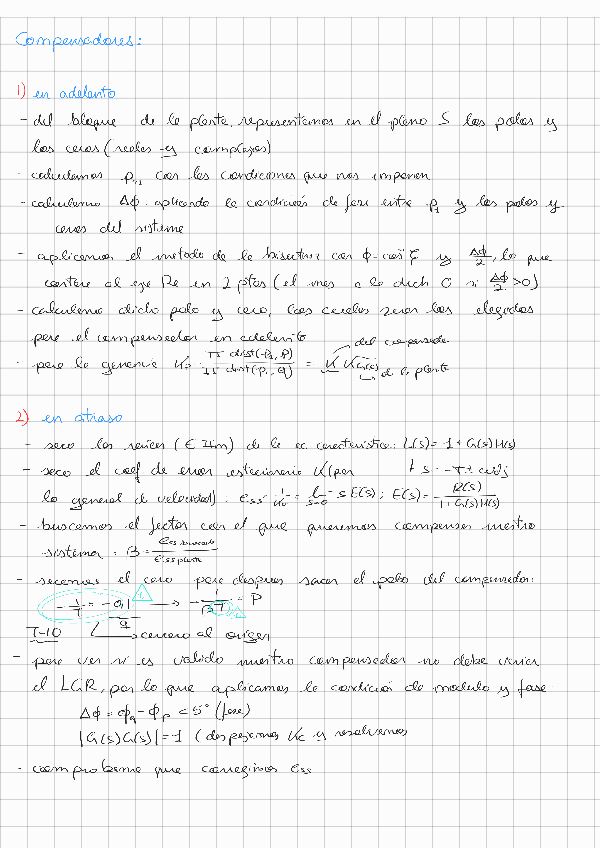 Compensadores:
1) en adelanto
- del bloque de la planta, representamos en el plano S los polos y
los ceros (reales y complejos)
- calculamos P₁, con las condiciones que nos imponen
- calculamo Δϕ aplicando la condición de fase entre p₁ y los polos y
ceros del sistema
- aplicamos el metodo de la bisectriz con ϕ=cos⁻¹ξ y Δϕ/2, lo que
al eje Re en 2 ptos (el mas a la dich 0 si Δϕ/2>0)
- calculamo dicho polo y cero, los cuales seran los elegidos
para el compensador en adelanto
del compensador
- para la ganancia K = π dist(-p₁, P) / π dist(p₁, q) = K K G(s)
de la planta
2) en atraso
- saco las raices (∈ Im) de la ec. caracteristica: L(s)= 1 + G(s)H(s)
- saco el coef de error estacionario K (por
lo general de velocidad): ess = 1/Kv = s E(s); E(s) = R(s) / 1+G(s)H(s)
- buscamos el factor con el que queremos compensar nuestro
sistema = β = ess buscado / ess planta
- sacamos el cero para despues sacar el polo del compensador:
-1/T = -0,1 → -1/βT = P
T=10 q cercano al origen
- para ver si es valido nuestro compensador no debe variar
el LGR, por lo que aplicamos la condición de modulo y fase
Δϕ = ϕq - ϕp < 5° (fase)
|G(s)G(s)| = 1 (despejamos Kc y resolvemos
- comprobamo que corregimos ess